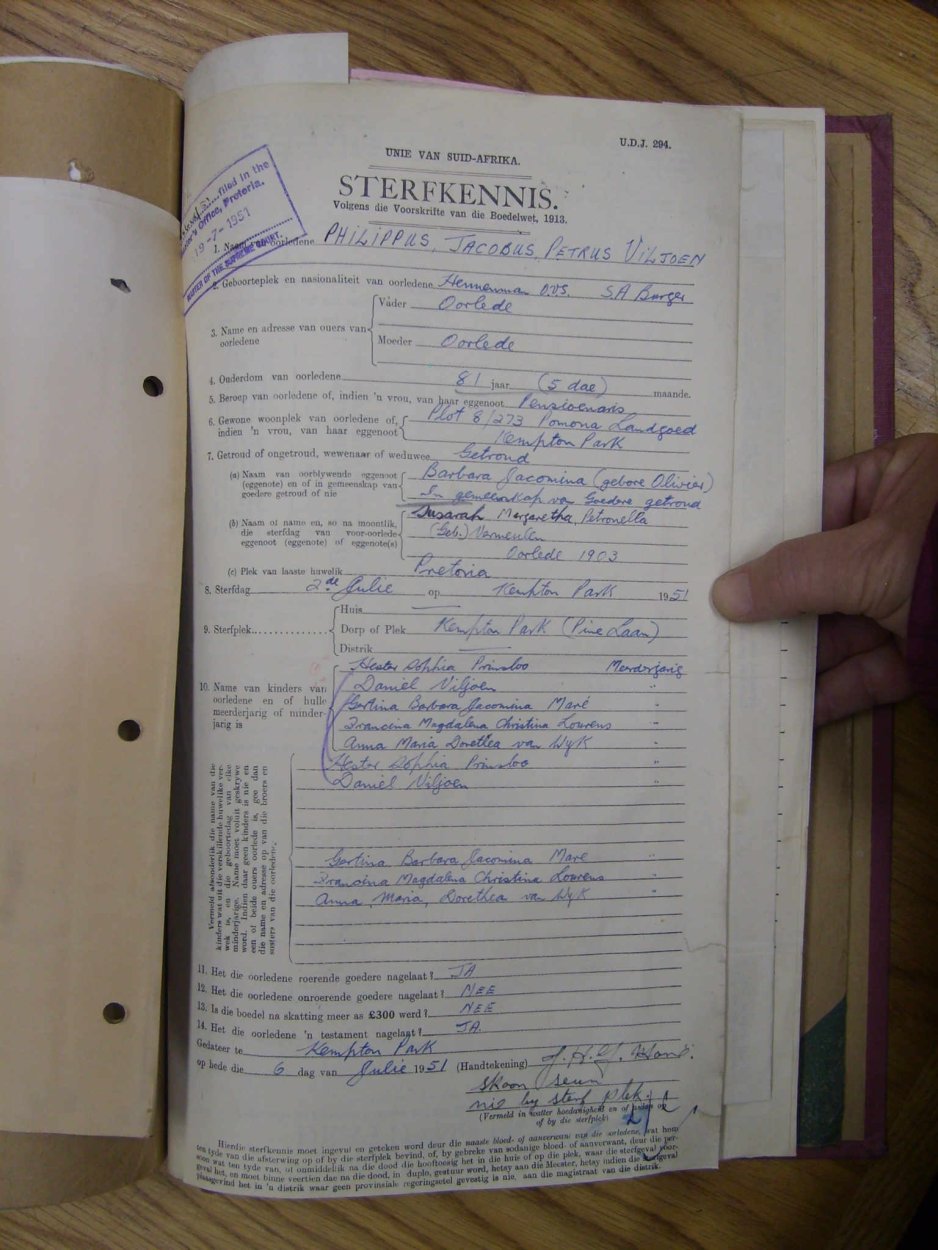 U.D.J. 294.
UNIE VAN SUID-AFRIKA.
STERFKENNIS.
Volgens die Voorskrifte van die Boedelwet, 1913.
filed in the
Office, Pretoria.
19-7-1951
MASTER OF THE SUPREME COURT.
1. Naam oorledene PHILIPPUS, JACOBUS, PETRUS VILJOEN
2. Geboorteplek en nasionaliteit van oorledene Hennenman O.V.S. S.A Burger
3. Name en adresse van ouers van oorledene
Vader Oorlede
Moeder Oorlede
4. Ouderdom van oorledene 81 jaar (5 dae) maande.
5. Beroep van oorledene of, indien 'n vrou, van haar eggenoot Pensioenaris
6. Gewone woonplek van oorledene of, Plot 8/273 Pomona Landgoed
indien 'n vrou, van haar eggenoot Kempton Park
7. Getroud of ongetroud, wewenaar of weduwee Getroud
(a) Naam van oorblywende eggenoot Barbara Jacomina (gebore Olivier)
(eggenote) en of in gemeenskap van
goedere getroud of nie In gemeenskap van Goedere getroud
(b) Naam of name en, so na moontlik, Susarah Margaretha Petronella
die sterfdag van voor-oorlede (Geb.) Vermeulen
eggenoot (eggenote) of eggenote(s) Oorlede 1903
(c) Plek van laaste huwelik Pretoria
8. Sterfdag 2de Julie op Kempton Park 1951
9. Sterfplek
Huis
Dorp of Plek Kempton Park (Pine Laan)
Distrik
10. Name van kinders van
oorledene en of hulle
meerderjarig of minder-
jarig is
Hester Sophia Prinsloo Meerderjarig
Daniel Viljoen "
Gertina Barbara Jacomina Maré "
Francina Magdalena Christina Lourens "
Anna Maria Dorethea van Wyk "
Hester Sophia Prinsloo "
Daniel Viljoen "
Gertina Barbara Jacomina Maré "
Francina Magdalena Christina Lourens "
Anna, Maria, Dorethea van Wyk "
Vermeld afsonderlik die name van die
kinders wat uit die verskillende huwelike ver-
wek is, en die geboortedag van elke
minderjarige. Name moet voluit geskrywe
word. Indien daar geen kinders is nie en
een of beide ouers oorlede is, gee dan
die name en adresse op van die broers en
susters van die oorledene.
11. Het die oorledene roerende goedere nagelaat? JA
12. Het die oorledene onroerende goedere nagelaat? NEE
13. Is die boedel na skatting meer as £300 werd? NEE
14. Het die oorledene 'n testament nagelaat? JA.
Gedateer te Kempton Park
op hede die 6 dag van Julie 1951 (Handtekening)
skoon seun
nie by sterf plek.
(Vermeld in watter hoedanigheid en of
of by die sterfplek)
Hierdie sterfkennis moet ingevul en geteken word deur die naaste bloed- of aanverwant van die oorledene, wat
ten tyde van die afsterwing op of by die sterfplek bevind, of, by gebreke van sodanige bloed- of aanverwant, deur die per-
soon wat ten tyde van, of onmiddelik na die dood die hooftoesig het in die huis of op die plek, waar die sterfgeval voor-
geval het, en moet binne veertien dae na die dood, in duplo, gestuur word, hetsy aan die Meester, hetsy indien die sterfgeval
plaasgevind het in 'n distrik waar geen provinsiale regeringsetel gevestig is nie, aan die magistraat van die distrik.